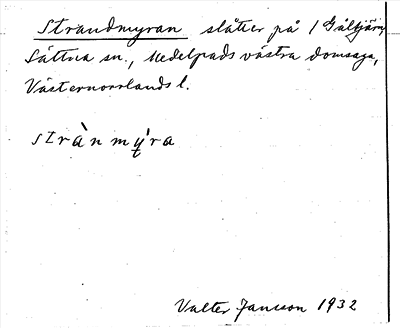 Strandmyran slåtter på 1 Gåltjärn
Sättna sn., Medelpads västra domsaga,
Västernorrlands l.
strànmýra
Valter Jansson 1932